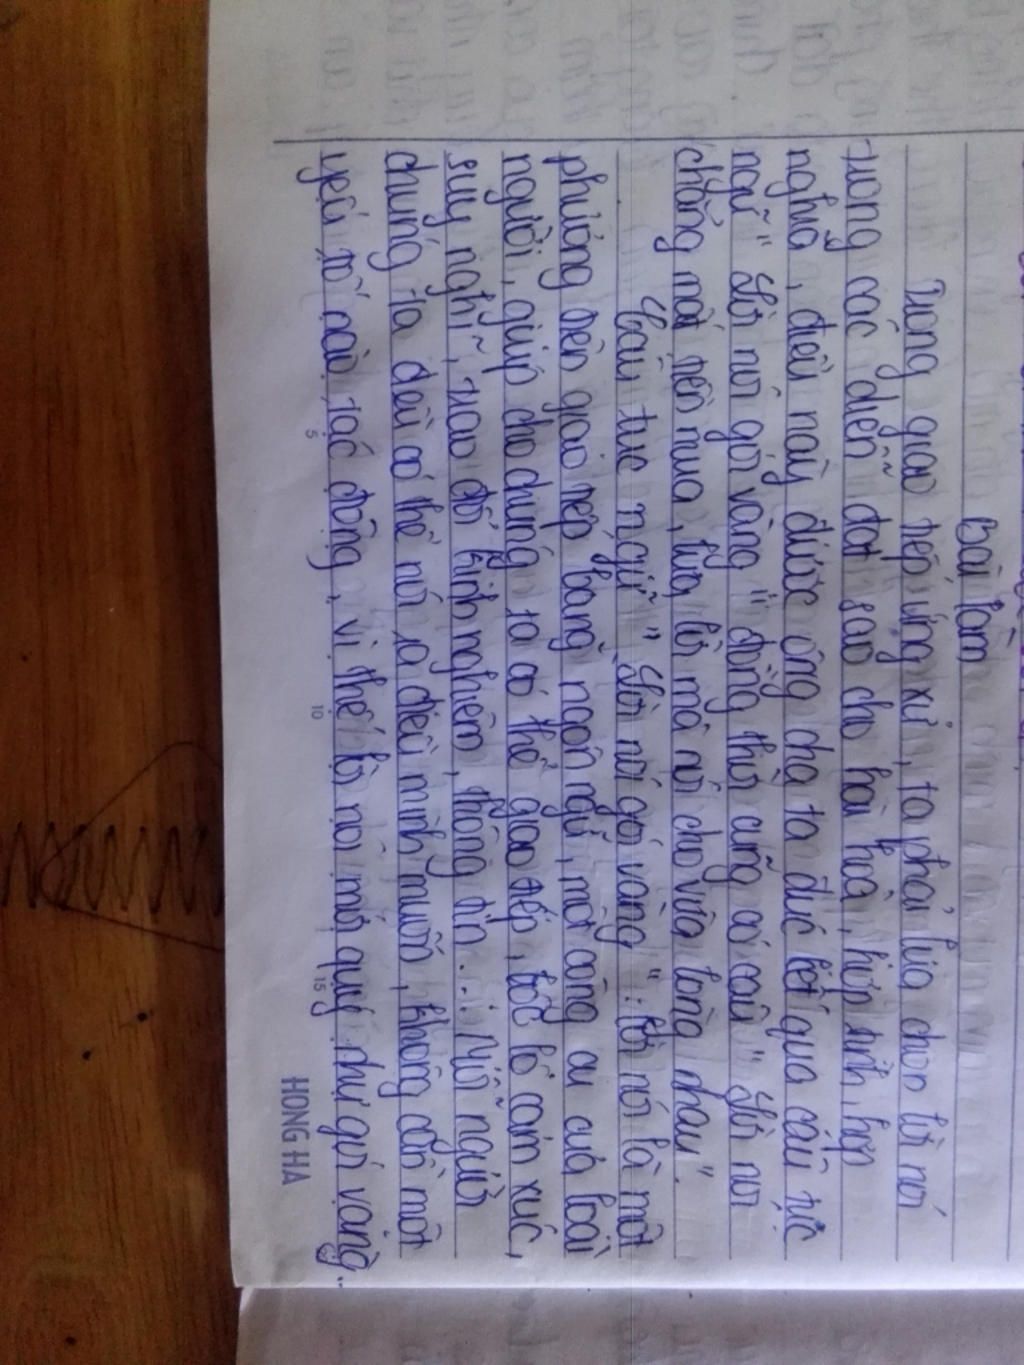 Bài làm
Trong giao tiếp ứng xử, ta phải lựa chọn lời nói
trong các diễn đạt sao cho hài hòa, hợp
nghĩa, điều này được ông cha ta đúc kết qua câu tục
ngữ " Lời nói gói vàng " đồng thời cũng có câu " Lời nói
chẳng mất tiền mua, lựa lời mà nói cho vừa lòng nhau".
Câu tục ngữ " Lời nói gói vàng ": lời nói là một
phương tiện giao tiếp bằng ngôn ngữ, một công cụ của loài
người, giúp cho chúng ta có thể giao tiếp, bộc lộ cảm xúc,
suy nghĩ, trao đổi kinh nghiệm, thông tin... Mỗi người
chúng ta đều có thể nói ra điều mình muốn, không cần một
yếu tố nào tác động, vì thế lời nói mới quý như gói vàng.
5
10
15
HONG HA